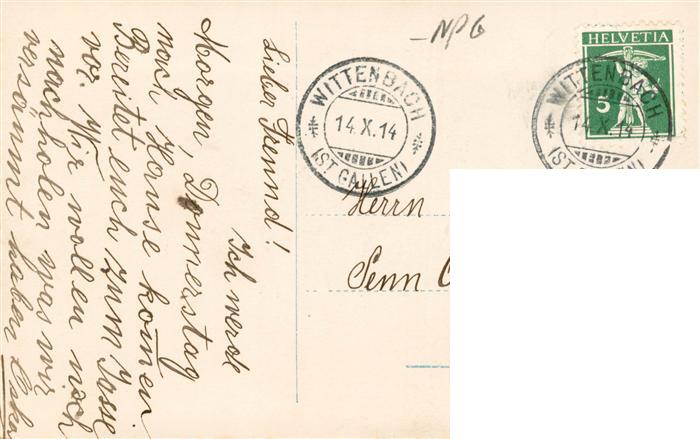 Lieber Freund!
Ich werde
Morgen, Donnerstag
nach Hause kom̄en
Bereitet euch zum Jasse
vor. Wir wollen noch
nachholen was wir
versäumt haben
NPG
WITTENBACH
14.X.14
(ST. GALLEN)
HELVETIA
5
WITTENBACH
14.X.14
(ST. GALLEN)
Herrn
Senn